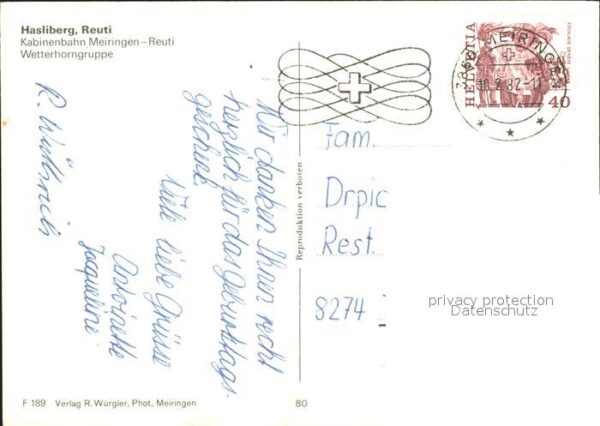 Hasliberg, Reuti
Kabinenbahn Meiringen–Reuti
Wetterhorngruppe
Wir danken Ihnen recht
herzlich für das Geburtstags-
geschenk.
Viele liebe Grüsse
Antoinette
Jacqueline
R. Wüllsreich
Reproduktion verboten
MEIRINGEN
HELVETIA
40
Fam.
Drpic
Rest.
8274
privacy protection
Datenschutz
F 189 Verlag R. Würgler, Phot., Meiringen
80